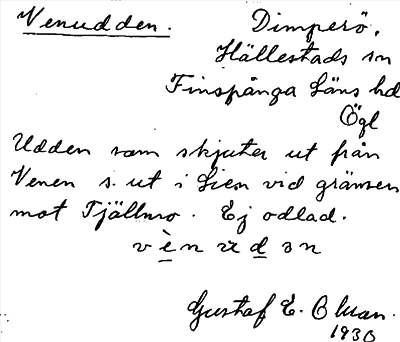 Venudden.
Dimperö.
Hällestads sn
Finspånga Läns hd
Ögl
Udden som skjuter ut från
Venen s. ut i Sien vid gränsen
mot Tjällmo. Ej odlad.
v è n ʉ d ə n
Gustaf E. Oluan.
1930